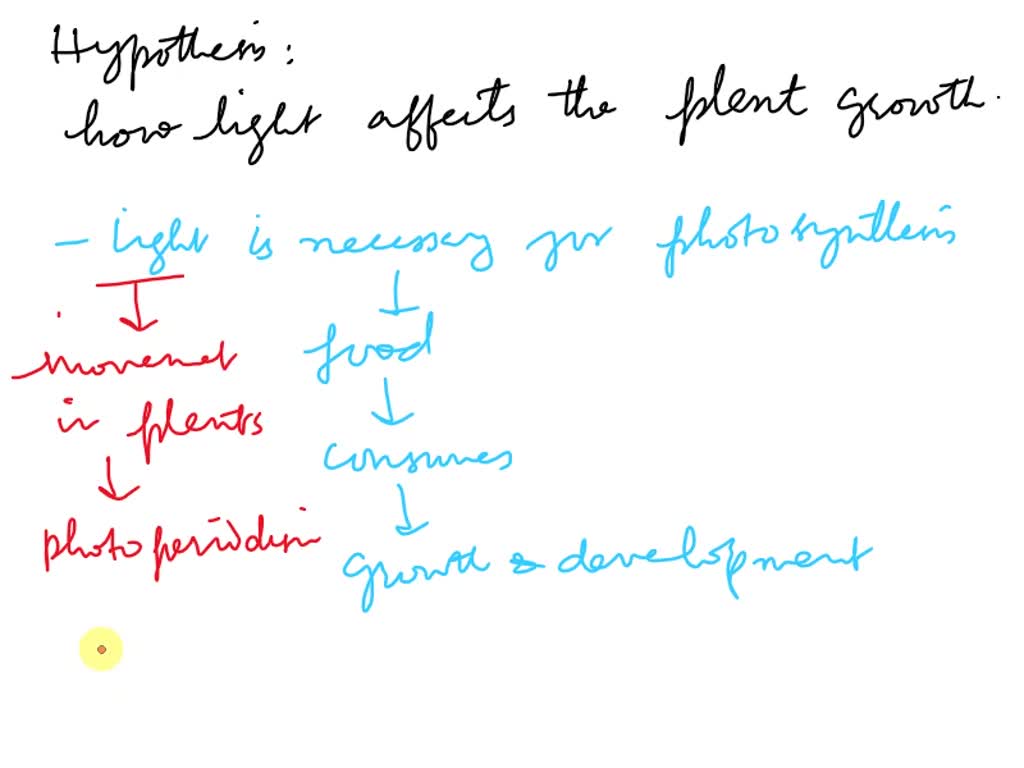 Hypothesis:
how light affects the plent growth.
- Light is necessary for photosynthesis
movemet
in plents
photoperiodism
food
consumes
growth & development